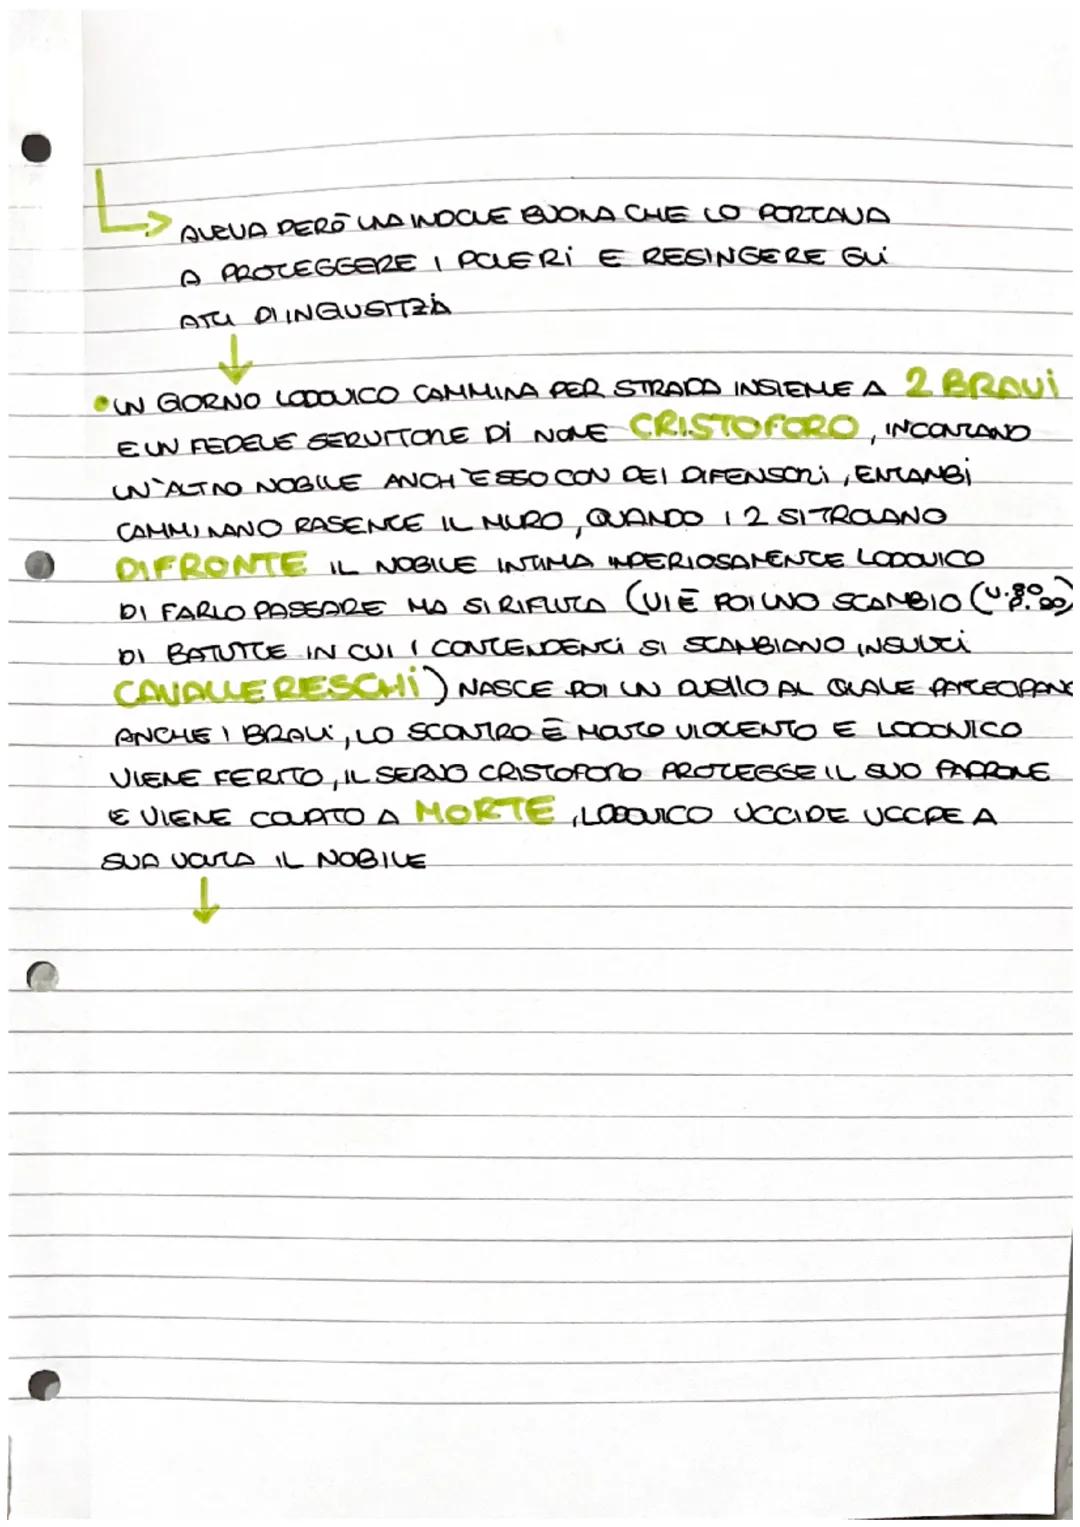 AVEVA PERÒ UNA INDOLE BUONA CHE LO PORTAVA
A PROTEGGERE I POVERI E RESINGERE GLI
ATTI DI INGIUSITZIA
UN GIORNO LODOVICO CAMMINA PER STRADA INSIEME A 2 BRAVI
E UN FEDELE SERVITORE DI NOME CRISTOFORO, INCONTRANO
UN'ALTRO NOBILE ANCH'ESSO CON DEI DIFENSORI, ENTRAMBI
CAMMINANO RASENTE IL MURO, QUANDO I 2 SI TROVANO
DIFRONTE IL NOBILE INTIMA IMPERIOSAMENTE LODOVICO
DI FARLO PASSARE MA SI RIFIUTA (VI È POI UNO SCAMBIO
DI BATUTTE IN CUI I CONTENDENTI SI SCAMBIANO INSULTI
CAVALLERESCHI) NASCE POI UN DUELLO AL QUALE PARTECIPANO
ANCHE I BRAVI, LO SCONTRO È MOLTO VIOLENTO E LODOVICO
VIENE FERITO, IL SERVO CRISTOFORO PROTEGGE IL SUO PADRONE
E VIENE COLPITO A MORTE, LODOVICO UCCIDE UCCPE A
SUA VOLTA IL NOBILE